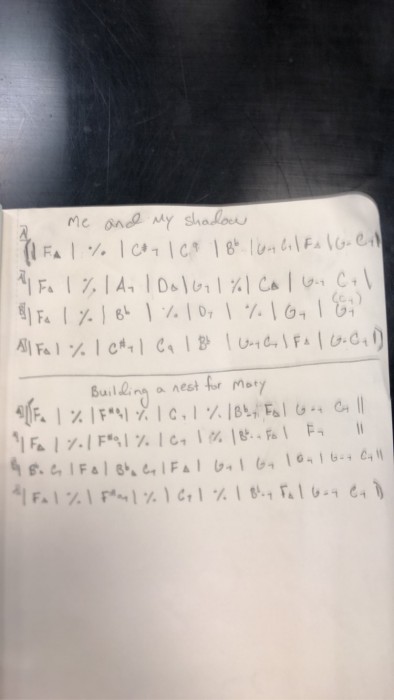 Me and My Shadow
A| F△ | % | C#7 | C7 | Bb | G-7 C7 | F△ | G-7 C7 |
A| F△ | % | A7 | D△ | G7 | % | C△ | G-7 C7 |
B| F△ | % | Bb | % | D7 | % | G7 | G7 (C7)
A| F△ | % | C#7 | C7 | Bb | G-7 C7 | F△ | G-C7 |
Building a nest for Mary
A| F△ | % | F#o7 | % | C7 | % | Bb-7 F△ | G-7 C7 ||
A| F△ | % | F#o7 | % | C7 | % | Bb-7 F△ | F7 ||
C7 | F△ | Bb△ C7 | F△ | G7 | G7 | G-7 C7 ||
A| F△ | % | F#o7 | % | C7 | % | Bb-7 F△ | G-7 C7 |